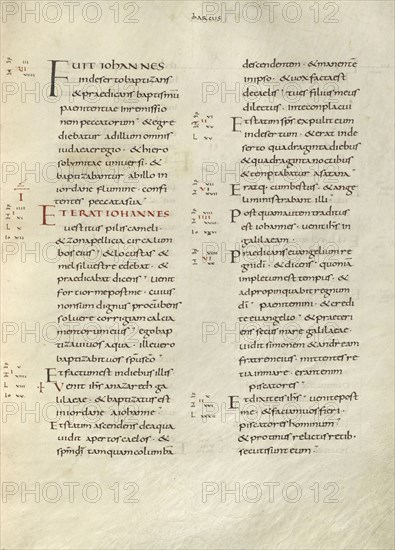 MARCUS
FUIT IOHANNES
indeserto baptizans
& praedicans baptismū
paenitentiae inremissio
nem peccatorum & egre
diebatur adillum omnis
iudaeae regio · & hiero
solymitae universi · &
baptizabantur abillo in
iordane flumine · confi
tentes peccata sua
ET ERAT IOHANNES
vestitus pilis cameli ·
& zona pellicia circa lum
bos eius · & locustas &
mel silvestre edebat · &
praedicabat dicens · venit
fortior me post me · cuius
non sum dignus procūbens
solvere corrigiam calcia
mentorum eius · ego bap
tizavi vos aqua · ille vero
baptizabit vos spū scō
Et factum est in diebus illis
Venit ih̄s a nazareth ga
lilaeae · & baptizatus est
in iordane a iohanne
Et statim ascendens de aqua
vidit apertos caelos · &
sp̄m tamquam columbā
descendentem · & manentē
in ipso · & vox facta est
de caelis · tu es filius meus
dilectus · in te conplacui
Et statim sp̄s expulit eum
in desertum · & erat in de
serto quadraginta diebus
& quadraginta noctibus
& temptabatur a satana
Eratq· cum bestiis · & ang̅e
li ministrabant illi
Postquam autem traditus
est iohannes · venit ih̄s in
galilaeam
Praedicans evangelium re
gni dī · & dicens · quoniā
impletum est tempus · &
adpropinquabit regnum
dī · paenitemini · & credi
te evangelio · & praeteri
ens secus mare galilaeae ·
vidit simonem & andream
fratrem eius · mittentes re
tia in mare · erant enim
piscatores
Et dixit eis ih̄s · venite post
me · & faciam vos fieri ·
piscatores hominum
& protinus relictis retib·
secuti sunt eum
PHOTO12